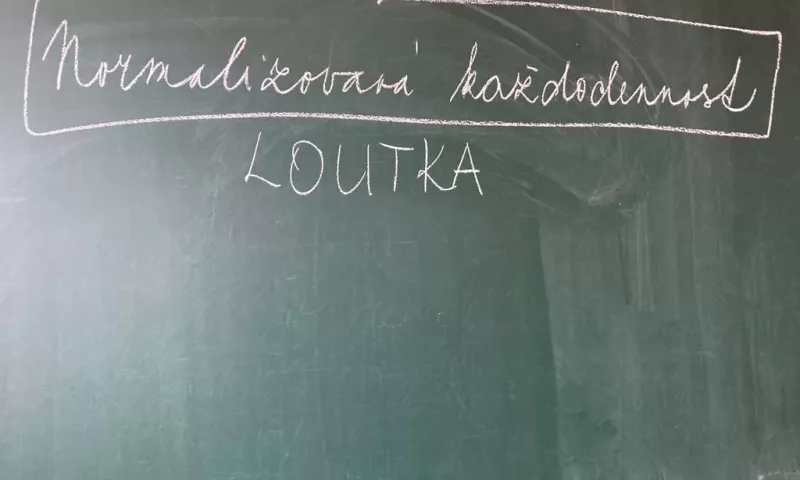 Normalizovaná každodennost
LOUTKA